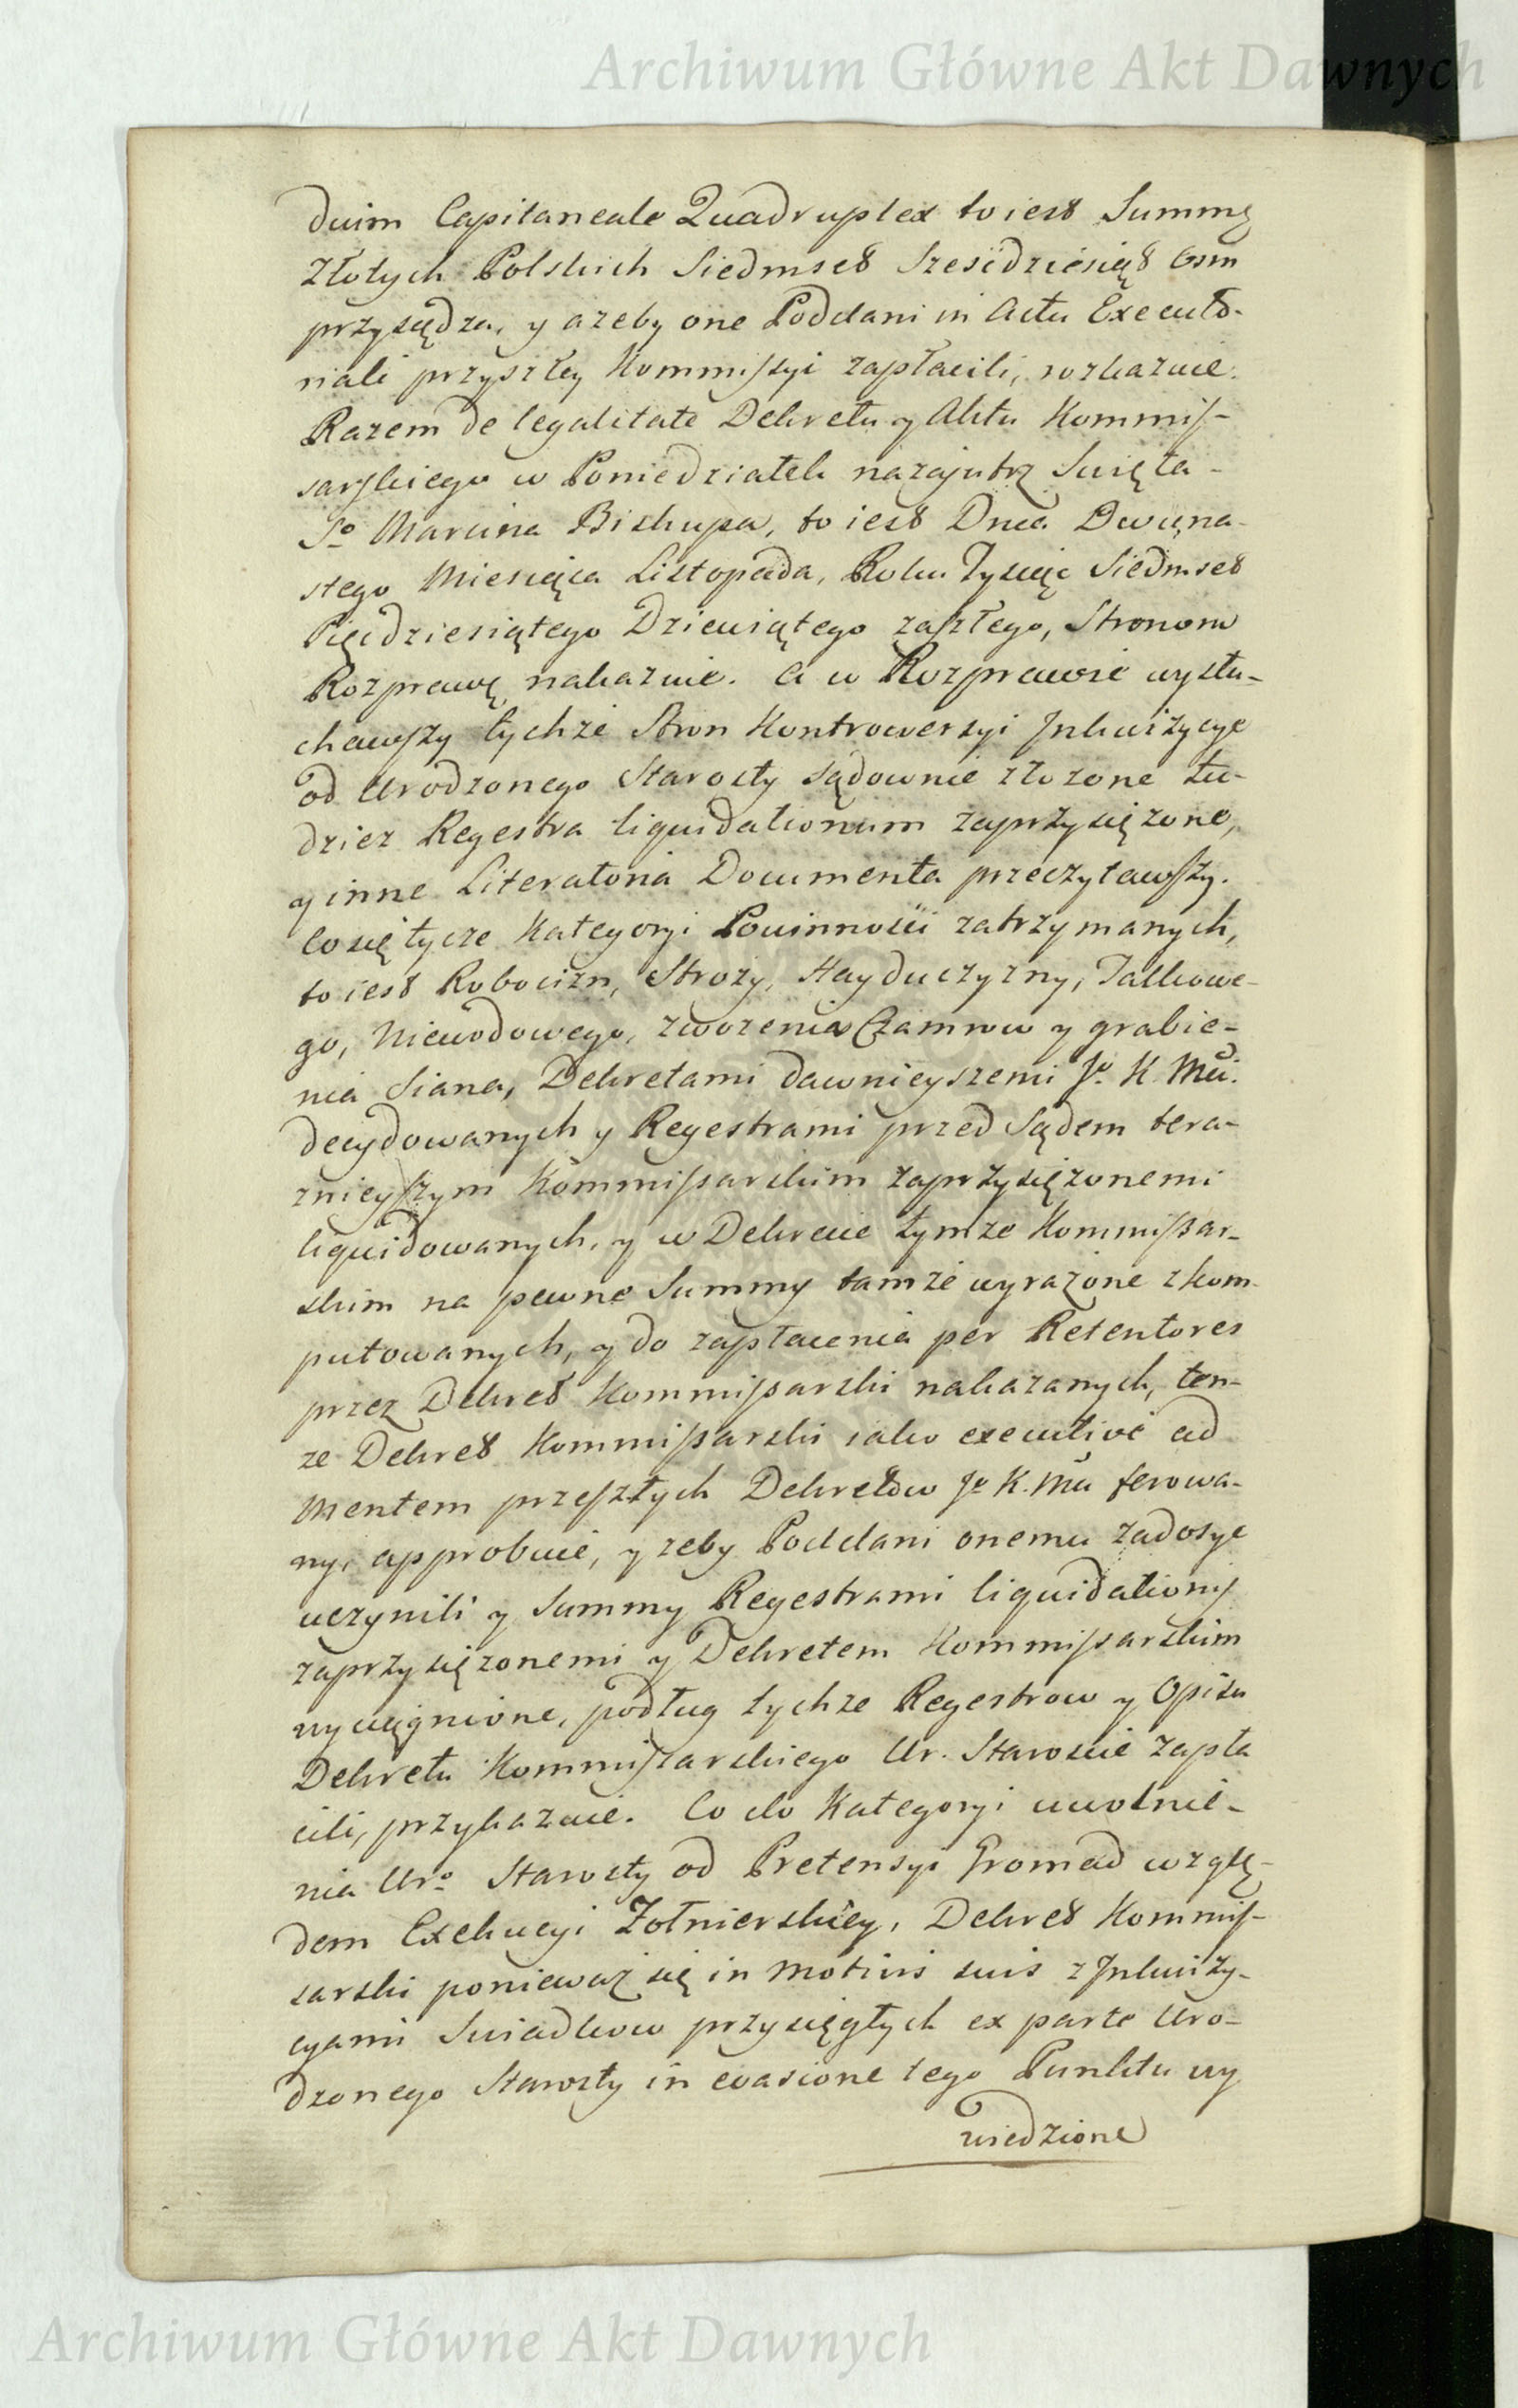 Archiwum Główne Akt Dawnych
duim Capitaneale Quadruplex to iest Summę
Złotych Polskich Siedmset Szesćdziesiąt Osm
przysądza, y azeby one Poddani in Actu Executo-
riali przyszłey Kommissyi zapłacili, rozkazuie.
Razem de legalitate Dekretu y Aktu Kommis-
sarskiego w Poniedziałek nazajutrz Swięta
So Marcina Biskupa, to iest Dnia Dwuna-
stego Miesiąca Listopada, Roku Tysiąc Siedmset
Pięćdziesiątego Dziewiątego zaszłego, Stronom
Rozprawę nakazuie. A w Rozprawie wysłu-
chawszy tychże Stron Kontrowersyi Inkwizycye
od Urodzonego Starosty sądownie złozone tu-
dziez Regestra liquidationum zaprzysięzone,
y inne Literatoria Documenta przeczytawszy.
Co się tycze Kategoryi Powinności zatrzymanych,
to iest Robocizn, Strozy, Hayduczyzny, Tałkowe-
go, Niewodowego, zwozenia Czamrow y grabie-
nia Siana, Dekretami dawnieyszemi Jo K Mci.
decydowanych y Regestrami przed Sądem tera-
znieyszym Kommissarskim zaprzysięzonemi
liquidowanych, y w Dekrecie tymze Kommissar-
skim na pewne Summy tamże wyrażone zkom-
putowanych, y do zapłacenia per Retentores
przez Dekret Kommissarski nakazanych, ten-
ze Dekret Kommissarski iako executivè ad
mentem przeszłych Dekretów Jo K. Mci ferowa-
ny, approbuie, y zeby Poddani onemu zadosyć
uczynili y Summy Regestrami liquidationis
zaprzysięzonemi y Dekretem Kommissarskim
wyciągnione, podług tychze Regestrow y Opisu
Dekretu Kommissarskiego Ur. Staroscie zapła
cili, przykazuie. Co do Kategoryi uwolnie-
nia Uro Starosty od Pretensyi Gromad wzglę-
dem Exekucyi Zołnierskiey, Dekret Kommis-
sarski ponieważ się in motivis suis z Inkwizy-
cyami Swiadkow przysięgłych ex parte Uro-
dzonego Starosty in evasione tego Punktu wy
wiedzione
Archiwum Główne Akt Dawnych